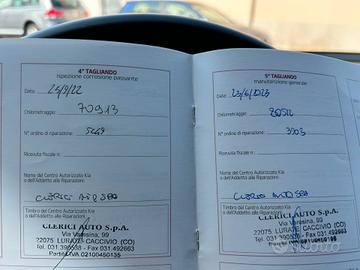 4° TAGLIANDO
ispezione corrosione passante
Data: 23/9/22
Chilometraggio: 70913
N° ordine di riparazione: 5449
Ricevuta fiscale n:
Nome del Centro Autorizzato Kia
o dell'Addetto alle Riparazioni:
CLERICI AUTO SPA
Timbro del Centro Autorizzato Kia
o dell'Addetto alle Riparazioni:
CLERICI AUTO S.p.A.
Via Varesina, 99
22075 LURATE CACCIVIO (CO)
Tel. 031.390538 - Fax 031.492663
Partita IVA 02100450135
5° TAGLIANDO
manutenzione generale
Data: 23/6/2023
Chilometraggio:
N° ordine di riparazione: 3503
Ricevuta fiscale n:
Nome del Centro Autorizzato Kia
o dell'Addetto alle Riparazioni:
CLERICI AUTO SPA
Timbro del Centro Autorizzato Kia
o dell'Addetto alle Riparazioni:
CLERICI AUTO S.p.A.
Via Varesina, 99
22075 LURATE CACCIVIO (CO)
Fax 031.492663